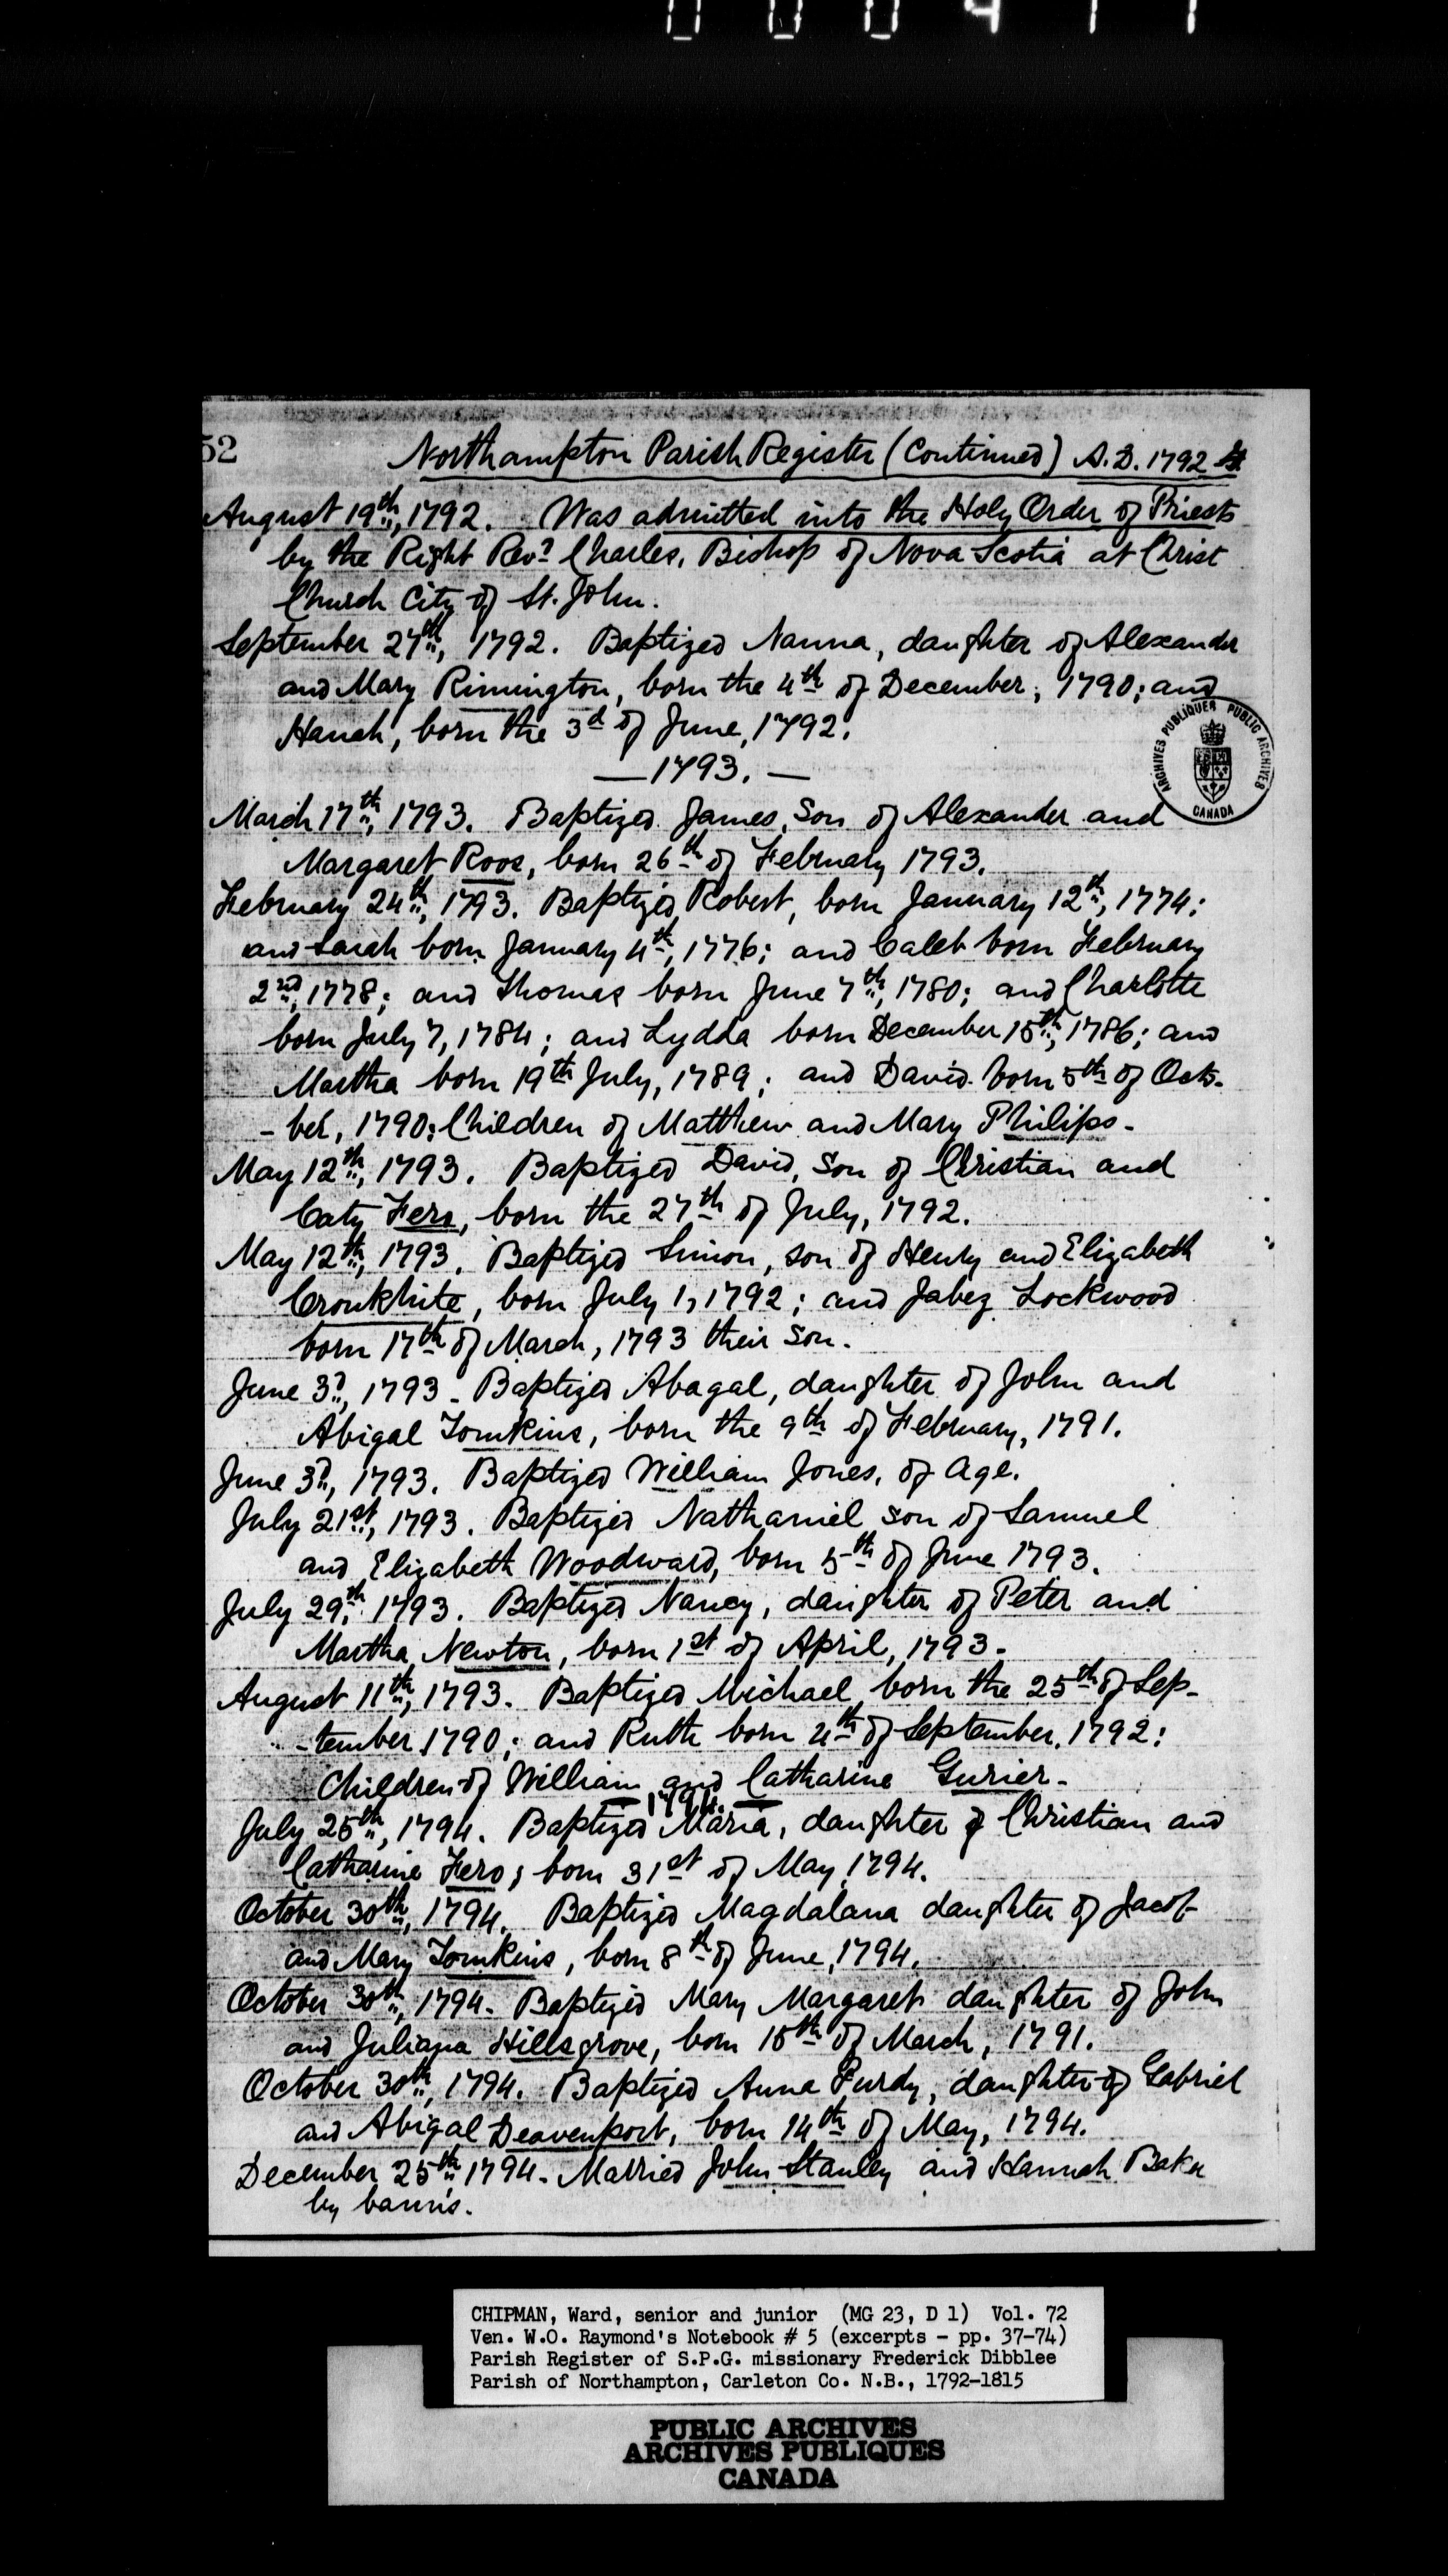 52
Northampton Parish Register (Continued) A.D. 1792
August 19th, 1792. Was admitted into the Holy Order of Priests
by the Right Revd Charles, Bishop of Nova Scotia at Christ
Church City of St. John.
September 27th, 1792. Baptized Nanna, daughter of Alexander
and Mary Rimington, born the 4th of December, 1790; and
Hanah, born the 3d of June, 1792.
— 1793. —
March 17th, 1793. Baptized James, Son of Alexander and
Margaret Roos, born 26th of February 1793.
February 24th, 1793. Baptized Robert, born January 12th, 1774;
and Sarah born January 4th, 1776; and Caleb born February
2nd, 1778; and Thomas born June 7th, 1780; and Charlotte
born July 7, 1784; and Lydda born December 15th, 1786; and
Martha born 19th July, 1789; and David born 5th of Octo-
-ber, 1790; Children of Matthew and Mary Philips.
May 12th, 1793. Baptized David, Son of Christian and
Caty Fero, born the 27th of July, 1792.
May 12th, 1793. Baptized Simon, son of Henry and Elizabeth
Cronkhite, born July 1, 1792; and Jabez Lockwood
born 17th of March, 1793 their son.
June 3d, 1793. Baptized Abagal, daughter of John and
Abigal Tomkins, born the 9th of February, 1791.
June 3d, 1793. Baptized William Jones, of age.
July 21st, 1793. Baptized Nathaniel son of Samuel
and Elizabeth Woodward, born 5th of June 1793.
July 29th 1793. Baptized Nancy, daughter of Peter and
Martha Newton, born 1st of April, 1793.
August 11th, 1793. Baptized Michael born the 25th of Sep-
-tember 1790; and Ruth born 4th of September, 1792;
Children of William and Catharine Gurier.
— 1794. —
July 25th, 1794. Baptized Maria, daughter of Christian and
Catharine Fero, born 31st of May 1794.
October 30th, 1794. Baptized Magdalana daughter of Jacob
and Mary Tomkins, born 8th of June, 1794.
October 30th, 1794. Baptized Mary Margaret daughter of John
and Juliana Hillsgrove, born 15th of March, 1791.
October 30th, 1794. Baptized Anna Purdy, daughter of Gabriel
and Abigal Deavenport, born 14th of May, 1794.
December 25th, 1794. Married John Stanley and Hannah Baker
by banns.
ARCHIVES PUBLIQUES PUBLIC ARCHIVES
CANADA
CHIPMAN, Ward, senior and junior (MG 23, D 1) Vol. 72
Ven. W.O. Raymond's Notebook # 5 (excerpts - pp. 37-74)
Parish Register of S.P.G. missionary Frederick Dibblee
Parish of Northampton, Carleton Co. N.B., 1792-1815
PUBLIC ARCHIVES
ARCHIVES PUBLIQUES
CANADA